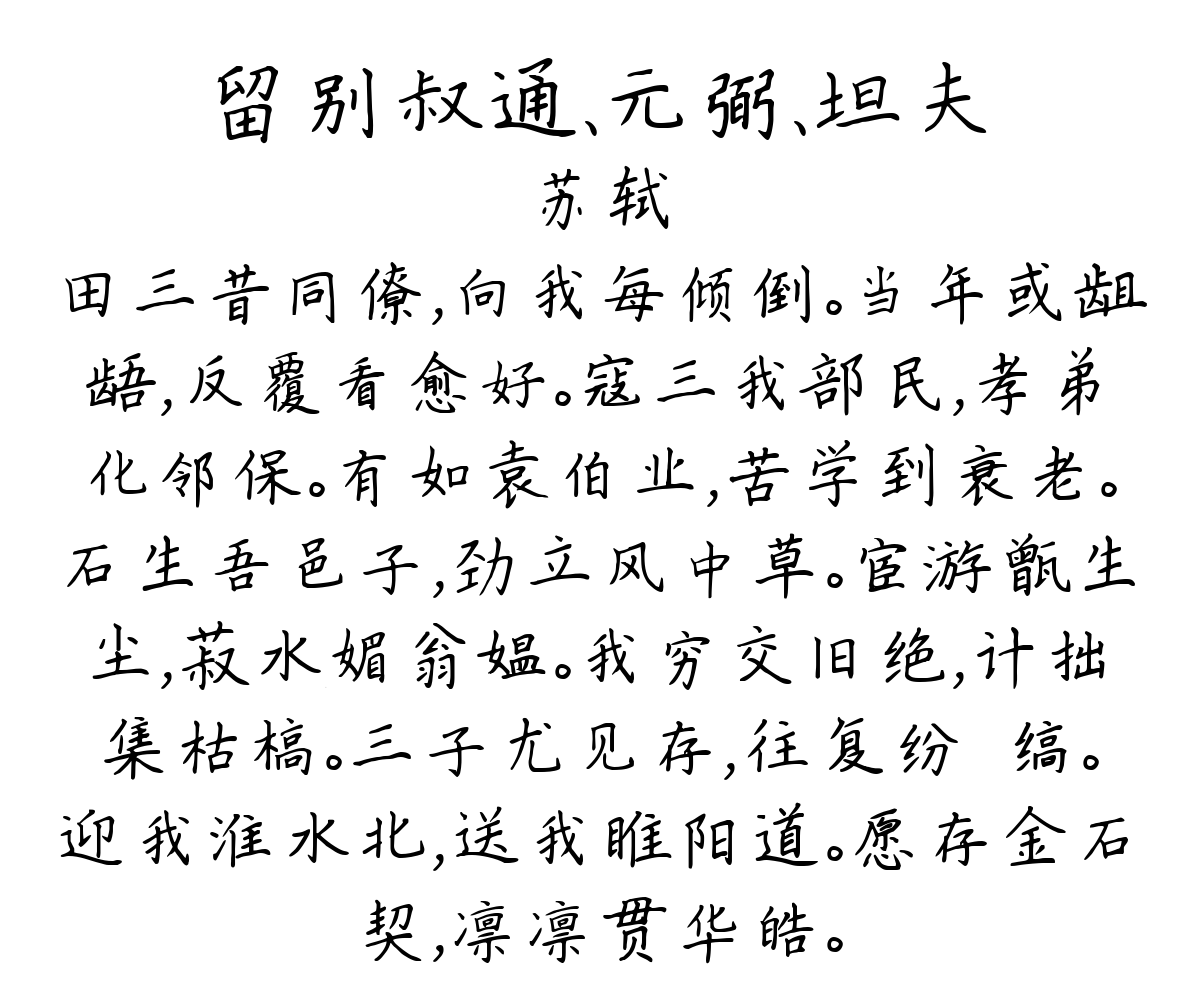 留别叔通、元弼、坦夫
苏轼
田三昔同僚,向我每倾倒。当年或龃
龉,反覆看愈好。寇三我部民,孝弟
化邻保。有如袁伯业,苦学到衰老。
石生吾邑子,劲立风中草。宦游甑生
尘,菽水媚翁媪。我穷交旧绝,计拙
集枯槁。三子尤见存,往复纷 缟。
迎我淮水北,送我睢阳道。愿存金石
契,凛凛贯华皓。